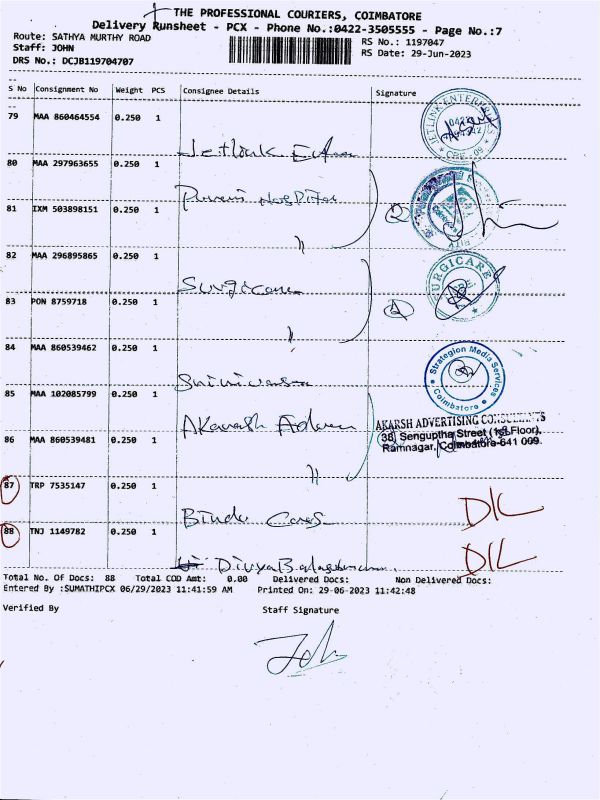 THE PROFESSIONAL COURIERS, COIMBATORE
Delivery Runsheet - PCX - Phone No.:0422-3505555 - Page No.:7
Route: SATHYA MURTHY ROAD
Staff: JOHN
DRS No.: DCJB119704707
RS No.: 1197047
RS Date: 29-Jun-2023
S No Consignment No Weight PCS Consignee Details Signature
79 MAA 860464554 0.250 1
JETLINK ENTERPRISES
80 MAA 297963655 0.250 1
Hospital
81 IXM 503898151 0.250 1
"
82 MAA 296895865 0.250 1
Surgicare
SURGICARE
83 PON 8759718 0.250 1
84 MAA 860539462 0.250 1
Srinivasan
Strategion Media Services
Coimbatore
85 MAA 102085799 0.250 1
Akarsh Adver
AKARSH ADVERTISING CONSULTANTS
38, Senguptha Street (1st Floor),
Ramnagar, Coimbatore-641 009.
86 MAA 860539481 0.250 1
"
87 TRP 7535147 0.250 1
Bindu Cones
D/L
88 TNJ 1149782 0.250 1
Divya Balasubramani
D/L
Total No. Of Docs: 88 Total COD Amt: 0.00 Delivered Docs: Non Delivered Docs:
Entered By :SUMATHIPCX 06/29/2023 11:41:59 AM Printed On: 29-06-2023 11:42:48
Verified By Staff Signature
John